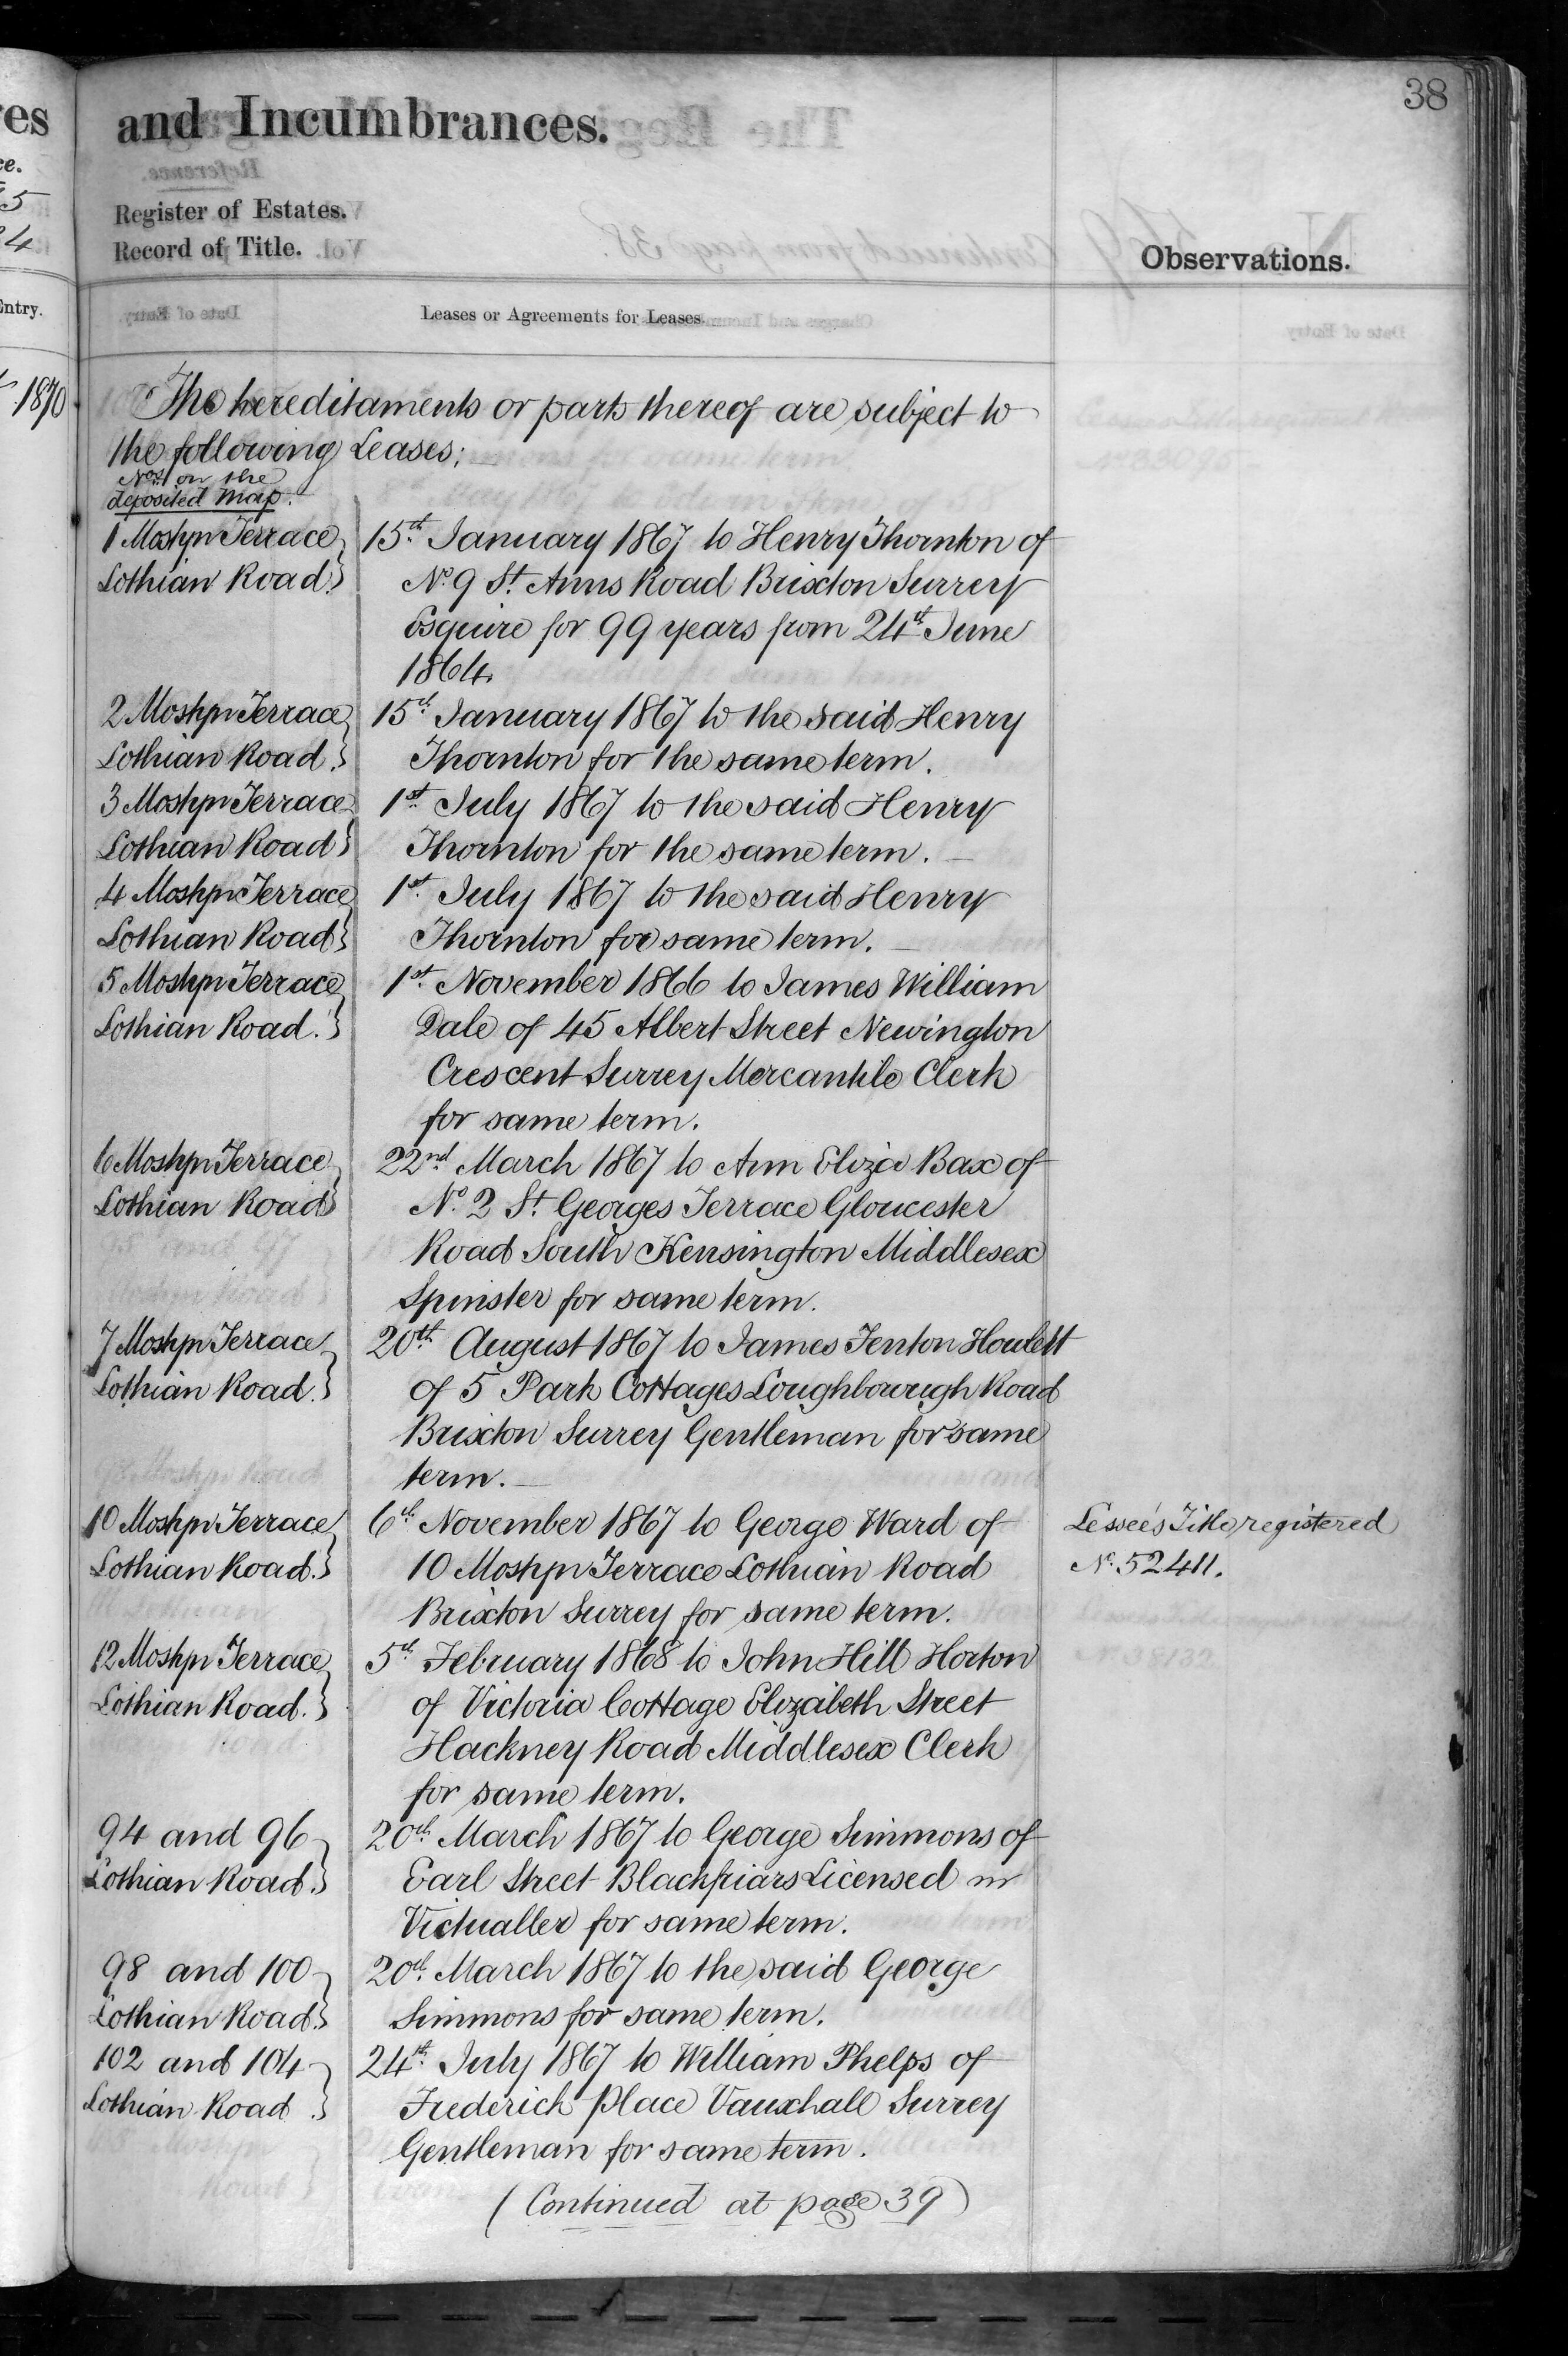 38
and Incumbrances.
Register of Estates.
Record of Title.
Observations.
Leases or Agreements for Leases.
The hereditaments or parts thereof are subject to
the following Leases:
Nos. on the
deposited Map.
1 Mostyn Terrace 15th January 1867 to Henry Thornton of
Lothian Road. No. 9 St. Anns Road Brixton Surrey
Esquire for 99 years from 24th June
1864.
2 Mostyn Terrace 15th January 1867 to the said Henry
Lothian Road. Thornton for the same term.
3 Mostyn Terrace 1st July 1867 to the said Henry
Lothian Road Thornton for the same term.
4 Mostyn Terrace 1st July 1867 to the said Henry
Lothian Road Thornton for same term.
5 Mostyn Terrace 1st November 1866 to James William
Lothian Road. Dale of 45 Albert Street Newington
Crescent Surrey Mercantile Clerk
for same term.
6 Mostyn Terrace 22nd March 1867 to Ann Eliza Bax of
Lothian Road No. 2 St. Georges Terrace Gloucester
Road South Kensington Middlesex
Spinster for same term.
7 Mostyn Terrace 20th August 1867 to James Fenton Howlett
Lothian Road. of 5 Park Cottages Loughborough Road
Brixton Surrey Gentleman for same
term.
10 Mostyn Terrace 6th November 1867 to George Ward of Lessee's Title registered
Lothian Road. 10 Mostyn Terrace Lothian Road No. 52411.
Brixton Surrey for same term.
12 Mostyn Terrace 5th February 1868 to John Hill Horton
Lothian Road. of Victoria Cottage Elizabeth Street
Hackney Road Middlesex Clerk
for same term.
94 and 96 20th March 1867 to George Simmons of
Lothian Road. Earl Street Blackfriars Licensed
Victualler for same term.
98 and 100 20th March 1867 to the said George
Lothian Road. Simmons for same term.
102 and 104 24th July 1867 to William Phelps of
Lothian Road. Frederick Place Vauxhall Surrey
Gentleman for same term.
(Continued at page 39)